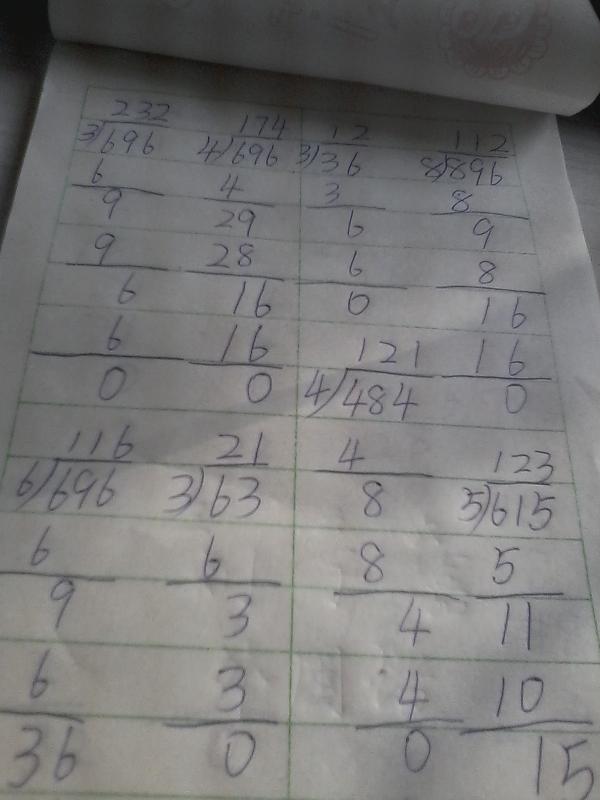 232 174 12 112
3)696 4)696 3)36 8)896
6 4 3 8
9 29 6 9
9 28 6 8
6 16 0 16
6 16 121 16
0 0 4)484 0
116 21 4 123
6)696 3)63 8 5)615
6 6 8 5
9 3 4 11
6 3 4 10
36 0 0 15